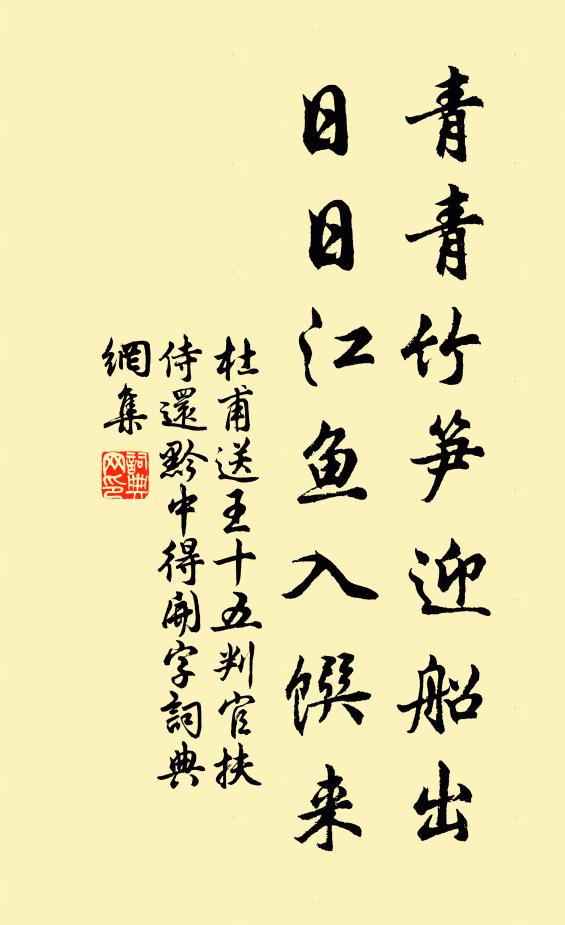 青青竹笋迎船出
日日江魚入饌来
杜甫送王十五判官扶
侍還黔中得開字詞典
網集
詞典网印